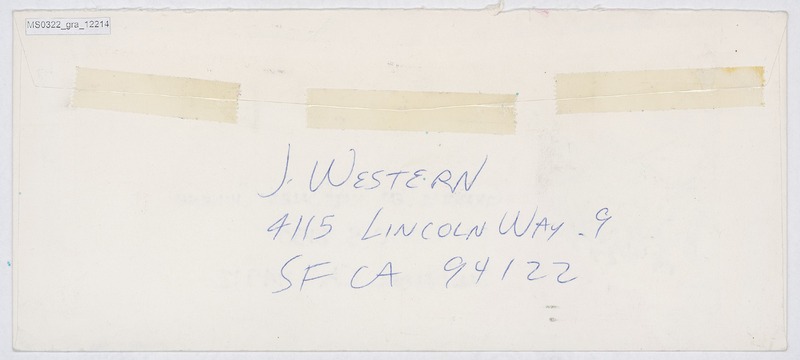 MS0322_gra_12214
J. WESTERN
4115 LINCOLN WAY - 9
SF CA 94122